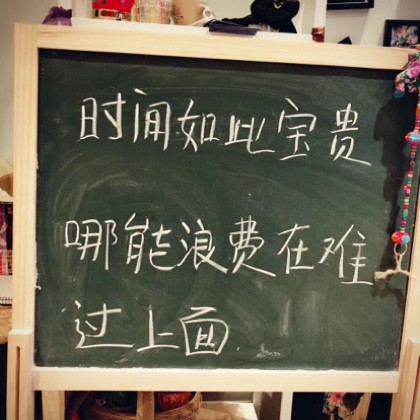 时间如此宝贵
哪能浪费在难
过上面.